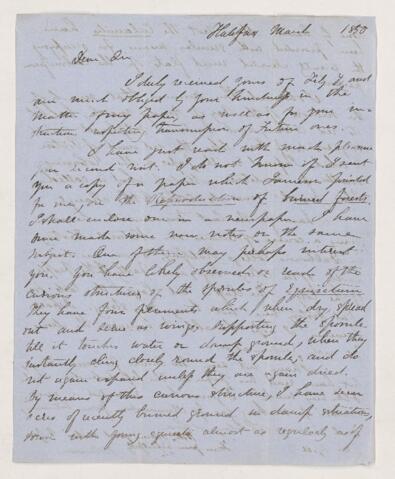 Halifax March 1850
Dear Sir
I duly received yours of Feby and
am much obliged by your kindness in the
matter of my paper, as well as for your in-
structions respecting transmission of future ones.
I have just read with much pleasure
your second visit. I do not know if I sent
you a copy of a paper which Jameson printed
for me on the Reproduction of burned forests,
I shall enclose one in a newspaper. I have
since made some new notes on the same
subject. One of them may perhaps interest
you. You have likely observed or read of the
curious structure of the sporules of Equisetum
They have four filaments which when dry spread
out and serve as wings, supporting the sporule
till it touches water or damp ground, when they
instantly cling closely round the sporule, and do
not again expand unless they are again dried.
By means of this curious structure, I have seen
acres of recently burned ground in damp situations,
sown with young equiseta almost as regularly as if